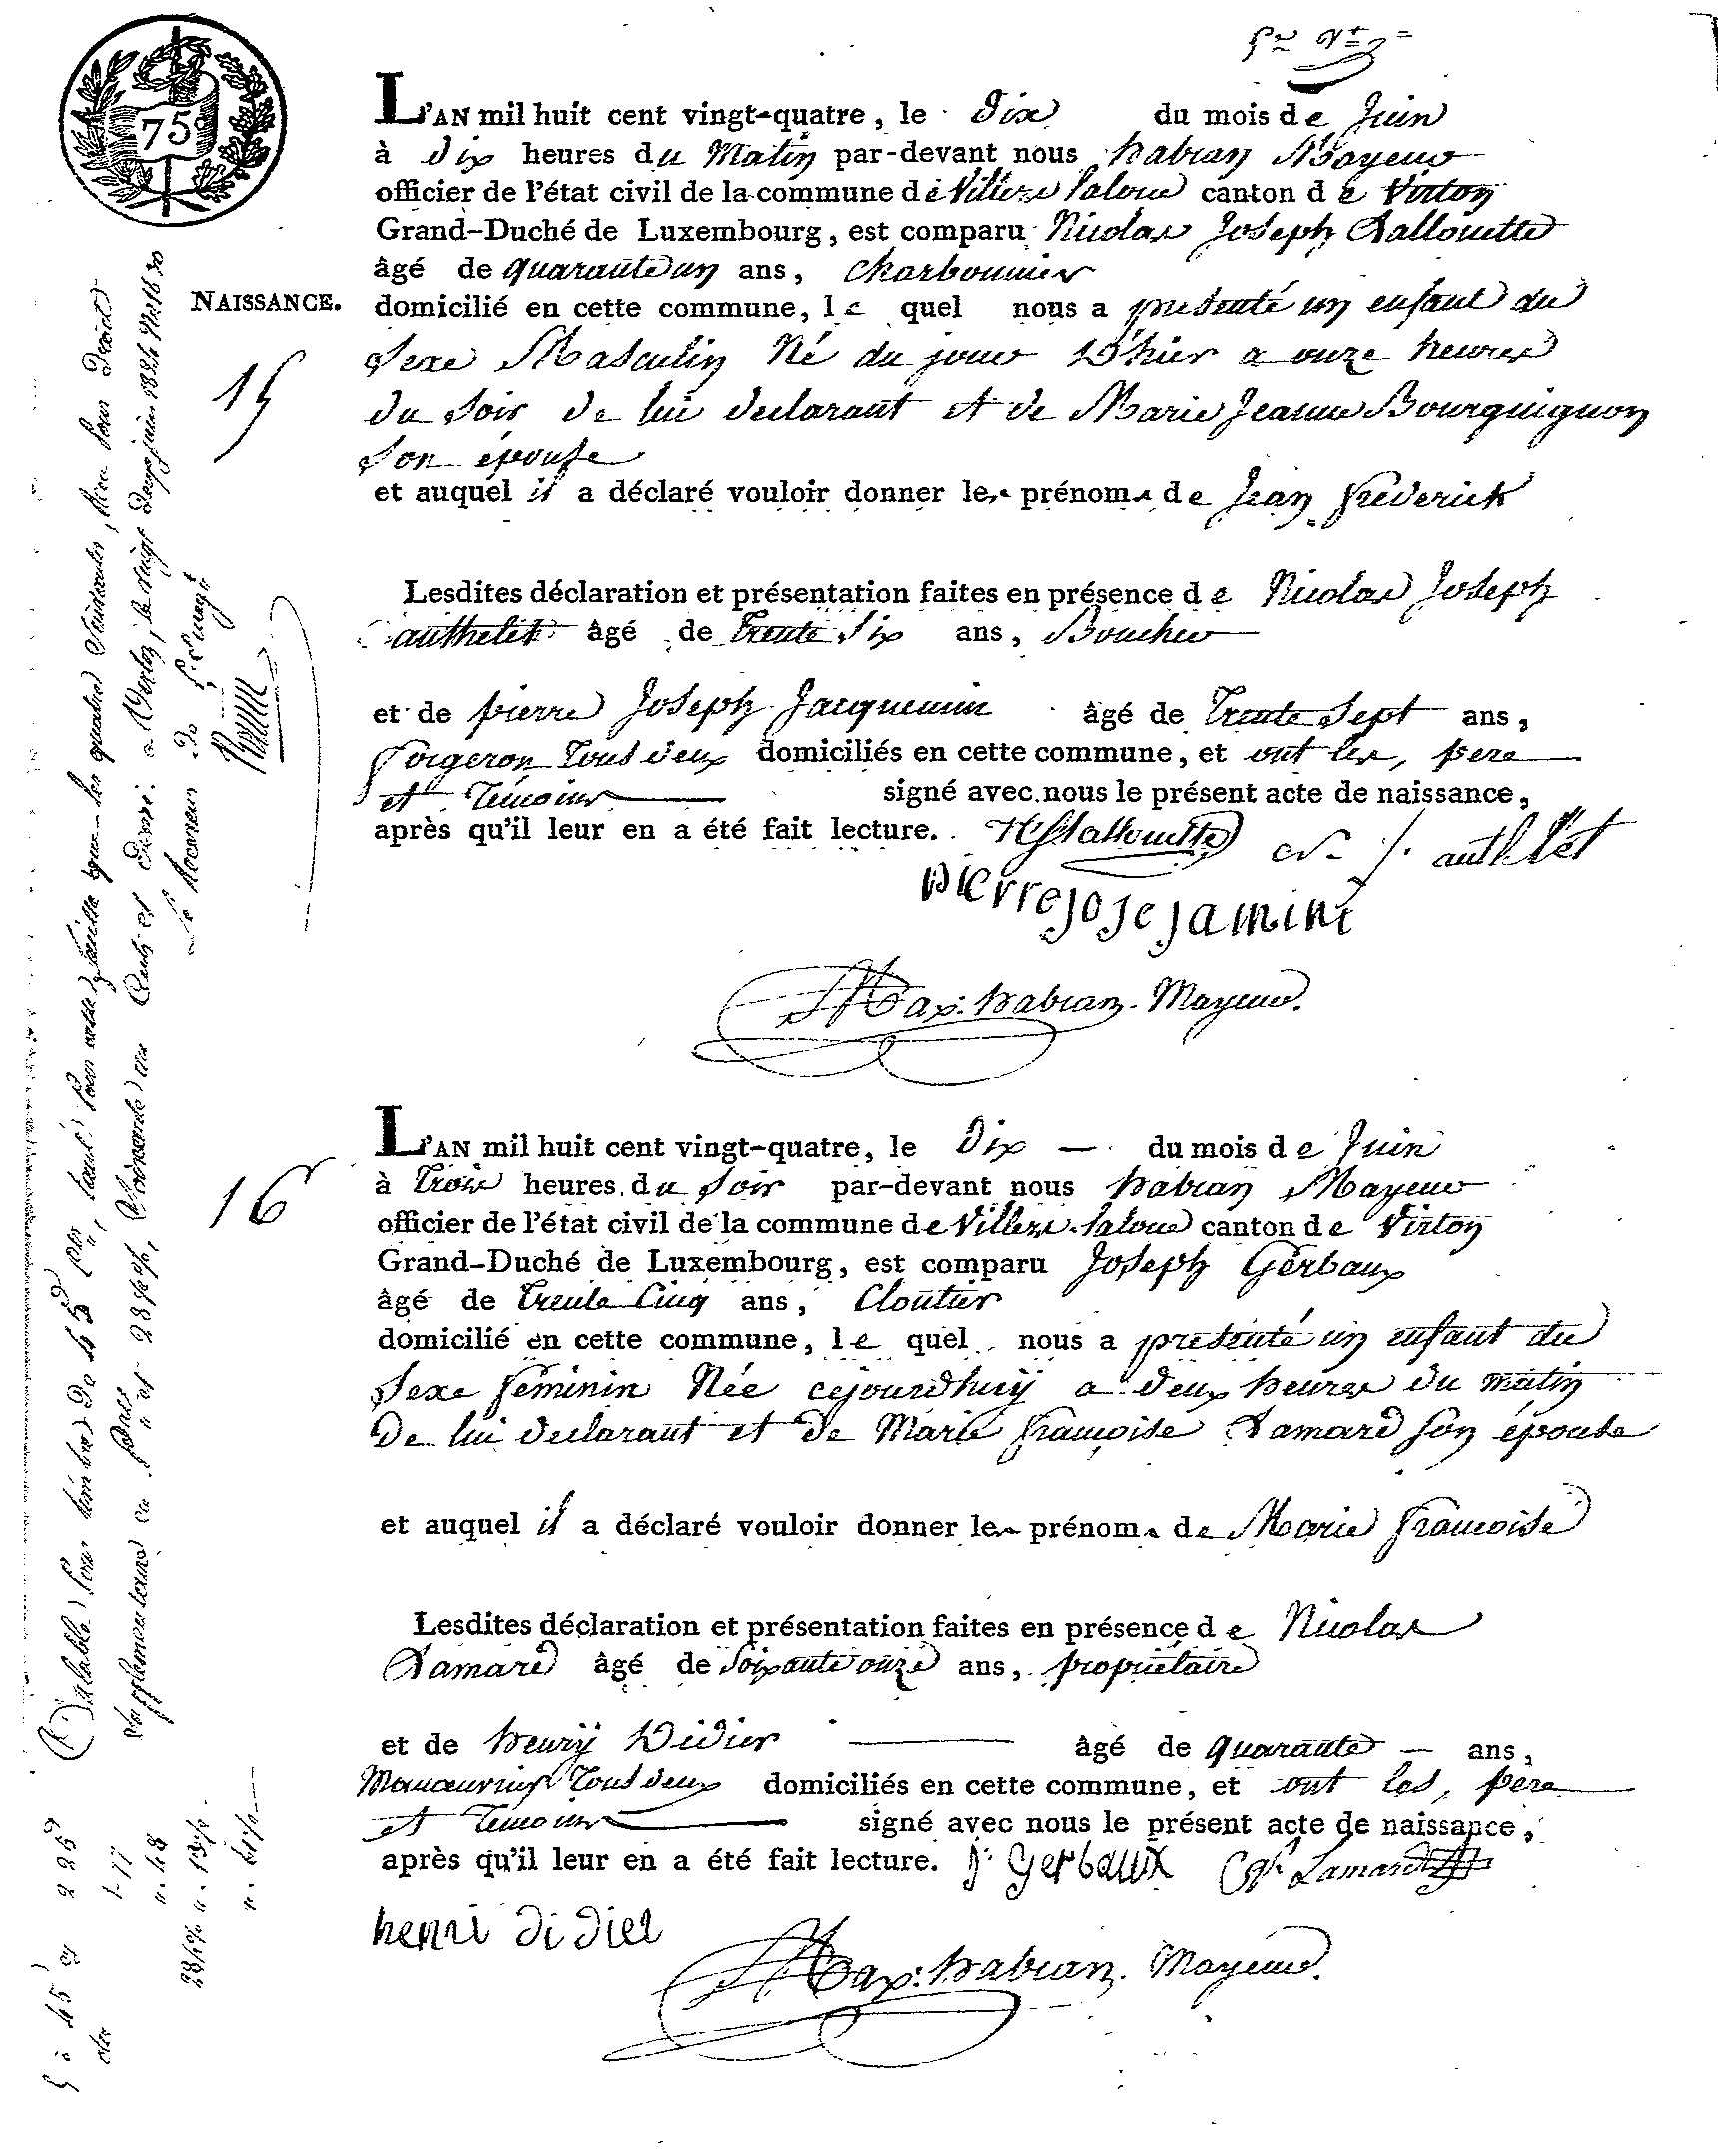 75c
L'AN mil huit cent vingt-quatre, le Dix du mois de Juin
à dix heures du Matin par-devant nous habran Mayeur
officier de l'état civil de la commune de Villers laloue canton de Virton
Grand-Duché de Luxembourg, est comparu Nicolas Joseph Lallouette
âgé de quarante un ans, charbonnier
NAISSANCE.
domicilié en cette commune, le quel nous a presenté un enfant du
15
Sexe Masculin Né du jour D'hier a onze heures
du Soir de lui declarant et de Marie Jeanne Bourguignon
Son épouse
et auquel il a déclaré vouloir donner les prénoms de Jean frederick
Lesdites déclaration et présentation faites en présence de Nicolas Joseph
authelet âgé de trente Six ans, Boucher
et de pierre Joseph Jacquemin âgé de trente Sept ans,
forgeron tous deux domiciliés en cette commune, et ont les, pere
et Témoins signé avec nous le présent acte de naissance,
après qu'il leur en a été fait lecture. NJLallouette N. J. authelet
pierre jose jamini
Max: habran. Mayeur.
L'AN mil huit cent vingt-quatre, le Dix du mois de Juin
16
à Trois heures du Soir par-devant nous habran Mayeur
officier de l'état civil de la commune de Villers laloue canton de Virton
Grand-Duché de Luxembourg, est comparu Joseph Gerbaux
âgé de trente Cinq ans, Cloutier
domicilié en cette commune, le quel nous a presenté un enfant du
Sexe féminin Née cejourdhuy a deux heures du matin
De lui declarant et de Marie françoise Lamard son épouse
et auquel il a déclaré vouloir donner les prénoms de Marie françoise
Lesdites déclaration et présentation faites en présence de Nicolas
Lamard âgé de Soixante onze ans, propriétaire
et de henry Didier âgé de quarante ans,
Manoeuvrier tous deux domiciliés en cette commune, et ont les, père
et Témoins signé avec nous le présent acte de naissance,
après qu'il leur en a été fait lecture. J. Gerbaux Lamard
henri didier
Max: habran. Mayeur.